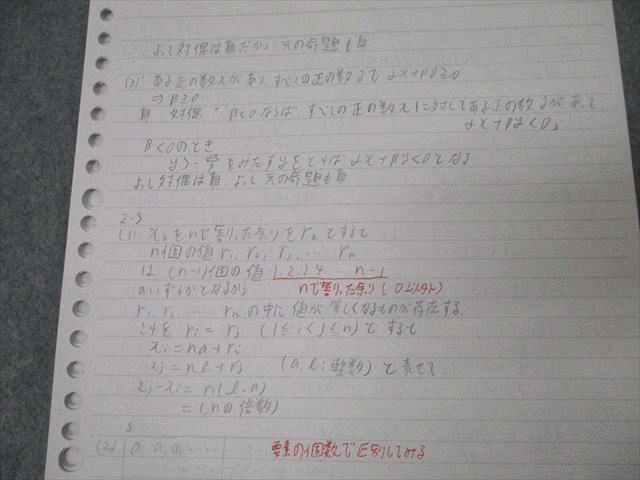 よって対偶は真だから 元の命題も真
(3) ある正の数xがあり、すべての正の数yで αx+βy≧0
⇒ β≧0
真 対偶「β<0ならば、すべての正の数xに対してある正の数yがあって
αx+βy<0」
β<0のとき
をみたすyをとれば αx+βy<0となる
よって対偶は真 よって元の命題も真
2-3
(1) xₖをnで割った余りをrₖとすると
n個の値 r₁, r₂, r₃, …… rₙ
は (n-1)個の値 1, 2, 3, 4 … n-1
のいずれかとなるから nで割った余り(0以外)
r₁, r₂ …… rₙの中に値が等しくなるものが存在する.
これを rᵢ=rⱼ (1≦i<j≦n)とすると
xᵢ=na+rᵢ
xⱼ=nb+rⱼ (a, b:整数)と表せて
xⱼ-xᵢ=n(b-a)
=(nの倍数)
s
(2) a₁ a₂ a₃ ……
要素の個数で区別してみる